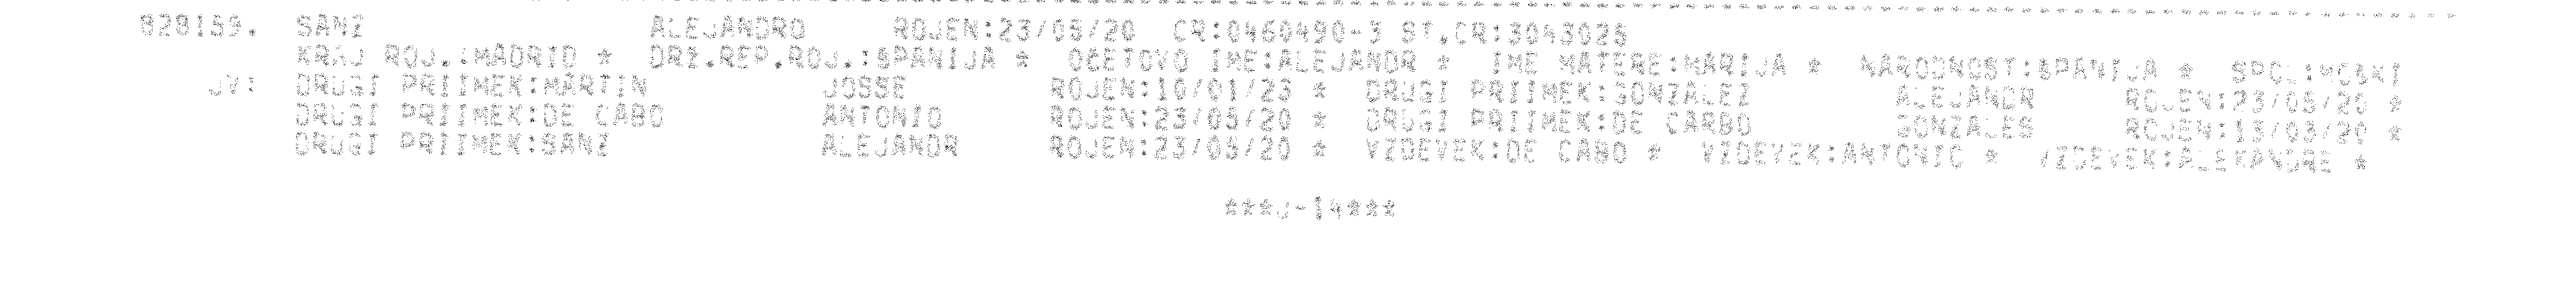 828159. SANZ ALEJANDRO ROJEN:23/05/20 CR:0460490-3 ST.CR:3043025
KRAJ ROJ.:MADRID * DRZ.REP.ROJ.:SPANIJA * OCETOVO IME:ALEJANDR * IME MATERE:MARIJA * NARODNOST:SPANIJA * SPOL:MOSKI
JV: DRUGI PRIIMEK:MARTIN JOSSE ROJEN:10/01/23 * DRUGI PRIIMEK:GONZALEZ ALEJANDR ROJEN:23/05/20 *
DRUGI PRIIMEK:DE CABO ANTONIO ROJEN:23/05/20 * DRUGI PRIIMEK:DE CARBO GONZALES ROJEN:13/03/20 *
DRUGI PRIIMEK:SANZ ALEJANDR ROJEN:23/05/20 * VZDEVEK:DE CABO * VZDEVEK:ANTONIO * VZDEVEK:ALEKANDRE *
***J-14***